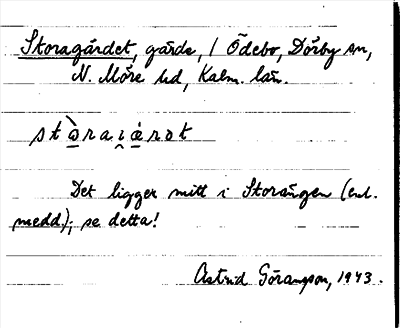 Storagärdet, gärde, / Ödebo, Dörby sn,
N. Möre hd, Kalm. län.
stɷ̀raɩ̯ɷ́rət
Det ligger mitt i Storängen (enl.
medd); se detta!
Astrid Göransson, 1943.